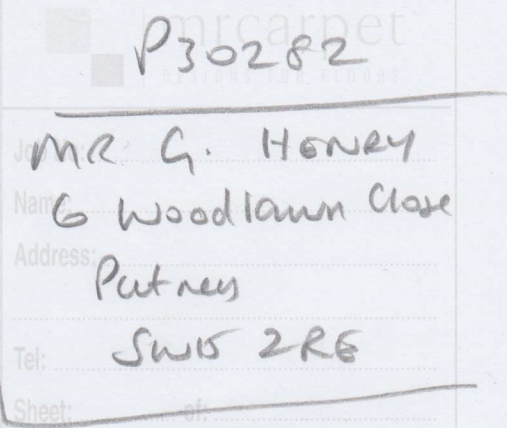 mrcarpet
DESIGNS FOR FLOORS
P30282
Job No:
MR G. HENRY
Name:
6 Woodlawn Close
Address:
Putney
Tel:
SW15 2RE
Sheet: of: